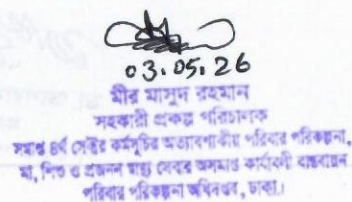 03.05.26
মীর মাসুদ রহমান
সহকারী প্রকল্প পরিচালক
সমাপ্ত ৪র্থ সেক্টর কর্মসূচির অত্যাবশ্যকীয় পরিবার পরিকল্পনা,
মা, শিশু ও প্রজনন স্বাস্থ্য সেবার অসমাপ্ত কার্যাবলী বাস্তবায়ন
পরিবার পরিকল্পনা অধিদপ্তর, ঢাকা।